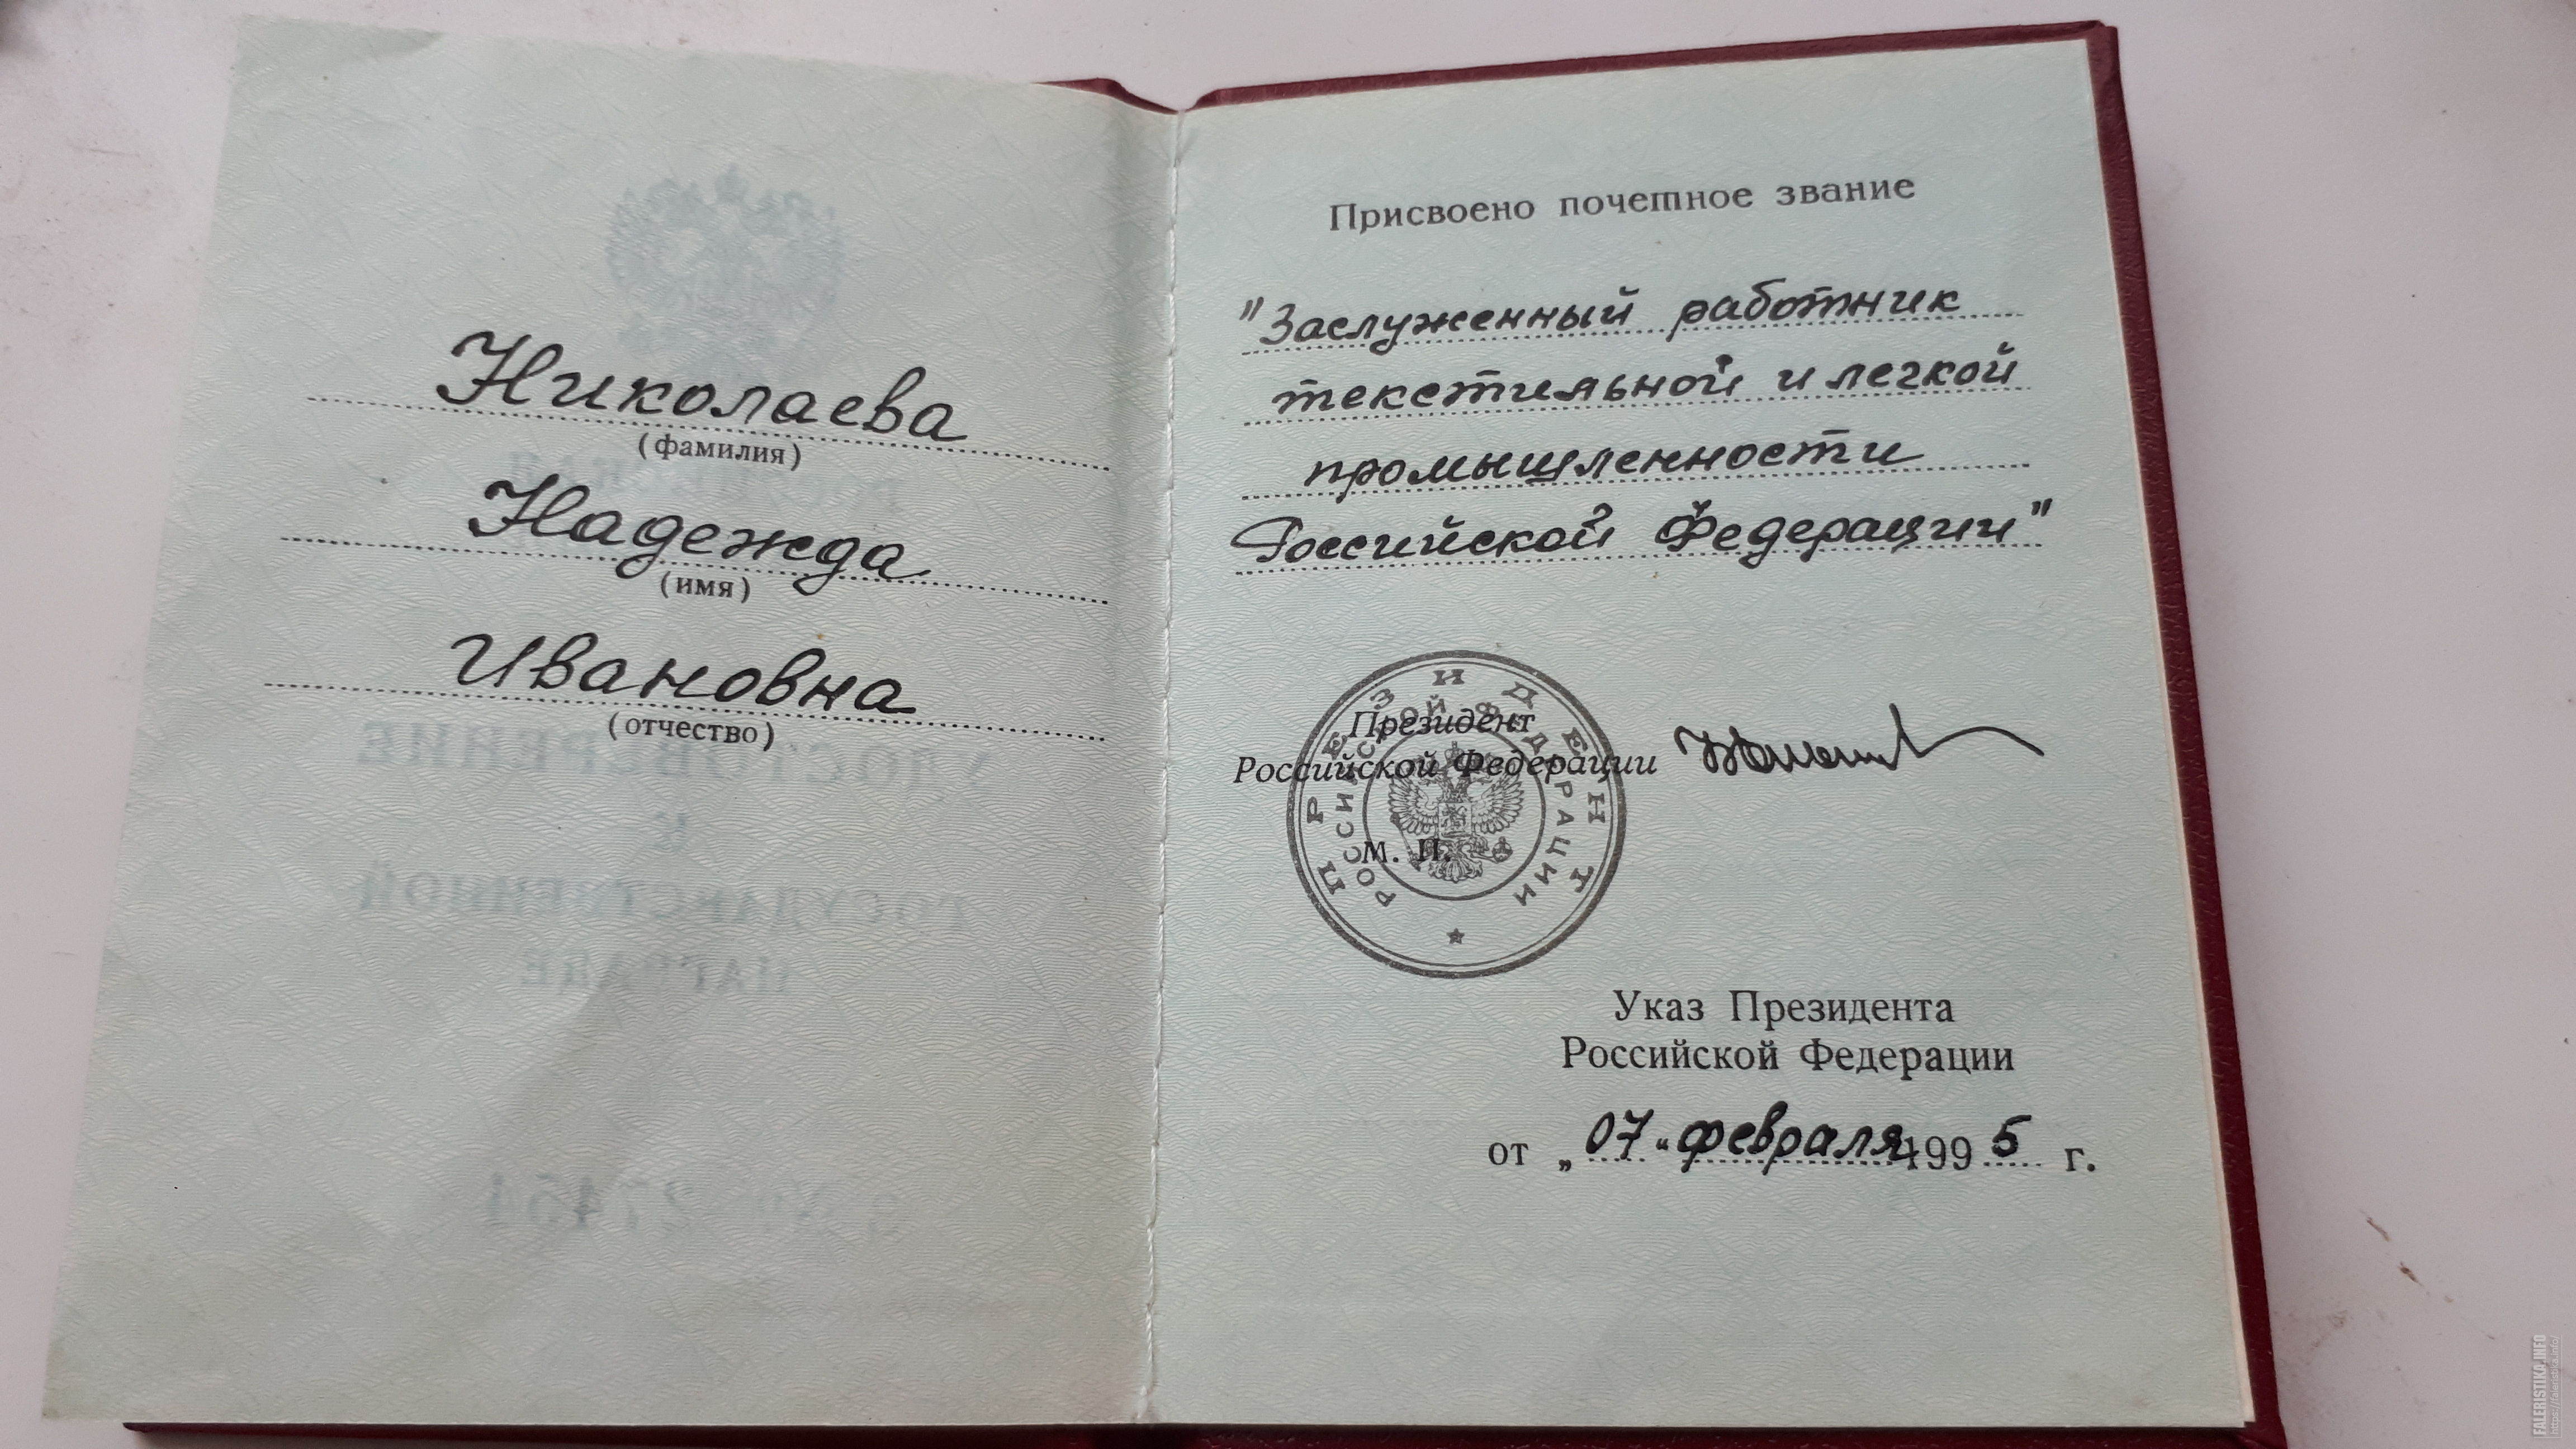 Николаева
(фамилия)
Надежда
(имя)
Ивановна
(отчество)
Присвоено почетное звание
"Заслуженный работник
текстильной и легкой
промышленности
Российской Федерации"
Президент
Российской Федерации
М. П.
ПРЕЗИДЕНТ
РОССИЙСКОЙ ФЕДЕРАЦИИ
Указ Президента
Российской Федерации
от „07“ февраля 1995 г.
FALERISTIKA.INFO
https://faleristika.info/